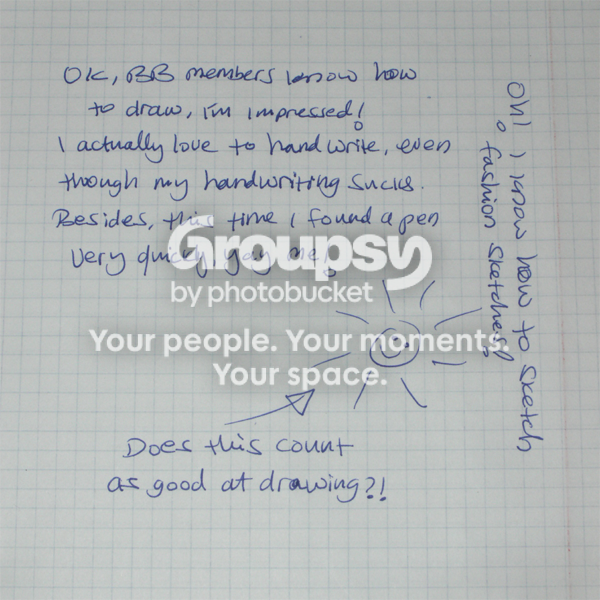 OK, BB members know how
to draw, I'm impressed!
I actually love to handwrite, even
though my handwriting sucks.
Besides, this time I found a pen
very quickly, yay me!
Groupsy
by photobucket
Your people. Your moments.
Your space.
Does this count
as good at drawing?!
Oh! I know how to sketch
fashion sketches!